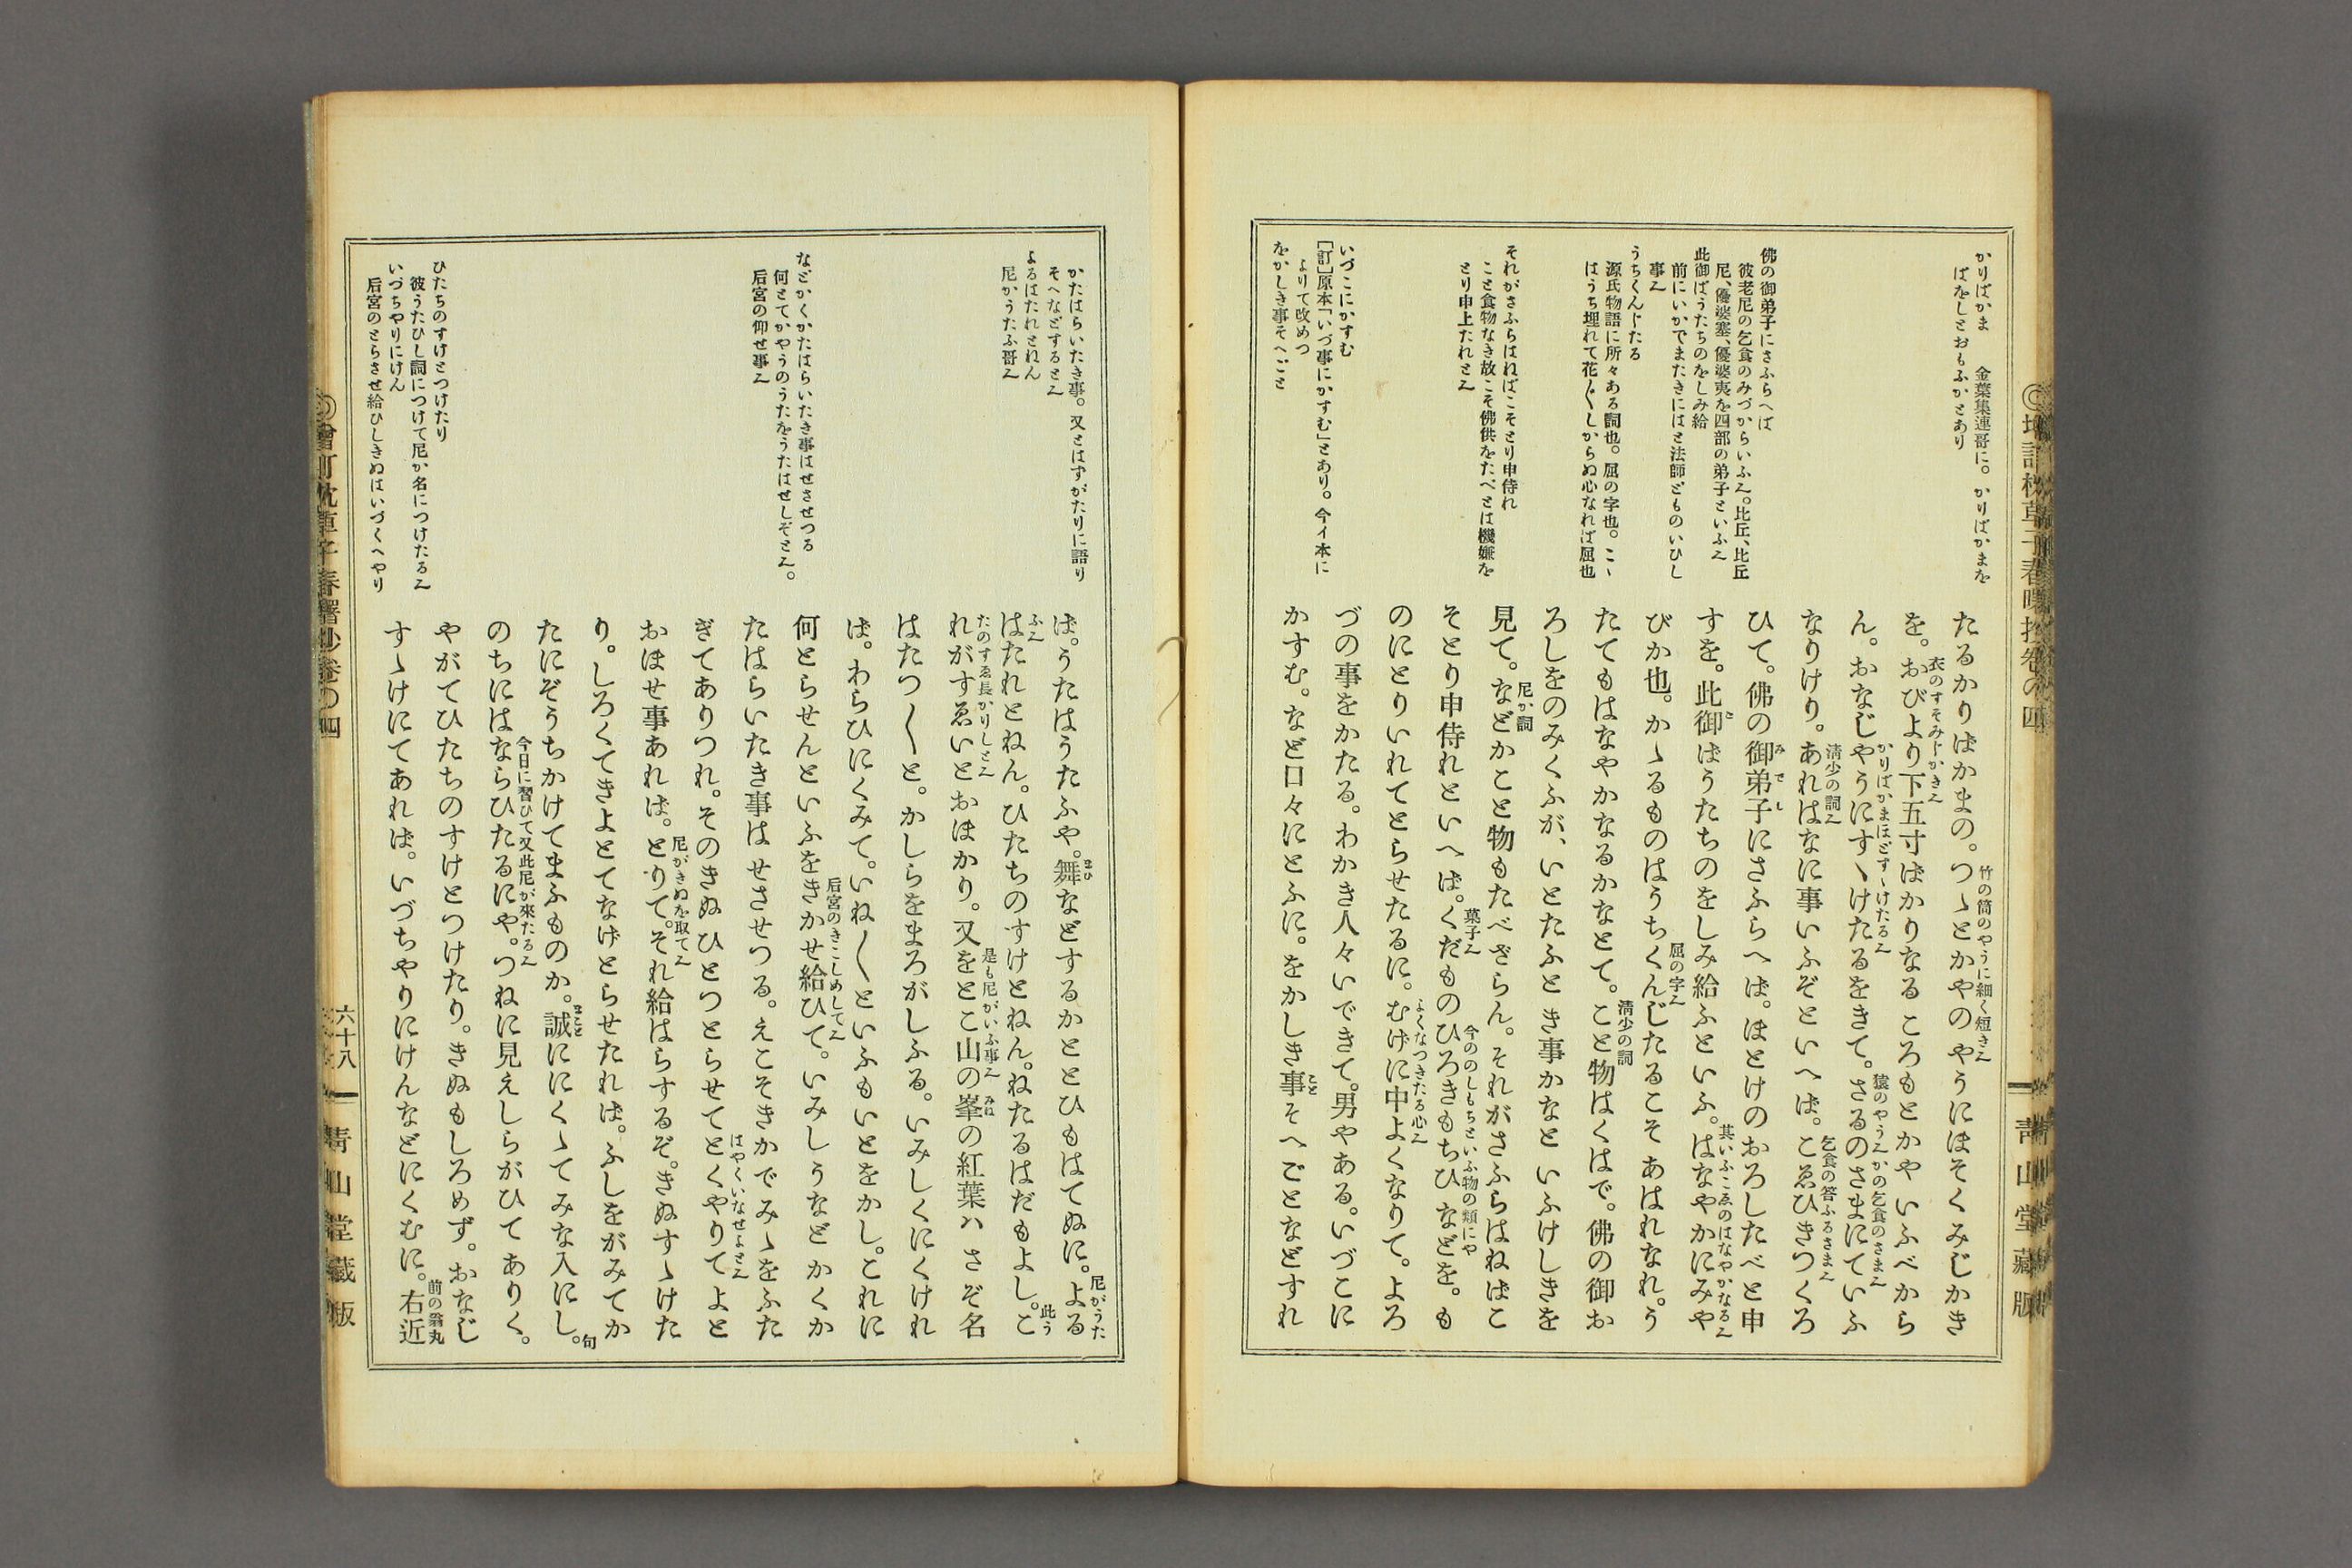 かりばかま　金葉集連哥に。かりばかまを
ばをしとおもふかとあり
佛の御弟子にさふらへば
彼老尼の乞食のみづからいふ𛀁。比丘、比丘
尼、優婆塞、優婆夷を四部の弟子といふ𛀁
此御ばうたちのをしみ給
前にいかでまたきにはと法師どものいひし
事𛀁
うちくんじたる
源氏物語に所々ある詞也。屈の字也。こゝ
はうち埋れて花〱しからぬ心なれば屈也
それがさふらはねばこそとり申侍れ
こと食物なき故こそ佛供をたべとは機嫌を
とり申上たれと𛀁
いづこにかすむ
［訂］原本「いづ事にかすむ」とあり。今イ本に
よりて改めつ
をかしき事そへごと
たるかりばかまの。つゝとかやのやうにほそくみじかき
竹の筒のやうに細く短き𛀁
を。おびより下五寸ばかりなる ころもとかや いふべから
衣のすそみじかき𛀁
ん。おなじやうにすゝけたるをきて。さるのさまにていふ
かりばかまほどすゝけたる𛀁
猿のやう𛀁かの乞食のさま𛀁
なりけり。あれはなに事いふぞといへば。こゑひきつくろ
清少の詞𛀁
乞食の答ふるさま𛀁
ひて。佛の御弟子にさふらへば。ほとけのおろしたべと申
みでし
すを。此御ばうたちのをしみ給ふといふ。はなやかにみや
其いふこゑのはなやかなる𛀁
びか也。かゝるものはうちくんじたるこそ あはれなれ。う
屈の字𛀁
たてもはなやかなるかなとて。こと物はくはで。佛の御お
清少の詞
ろしをのみくふが、いとたふとき事かなと いふけしきを
見て。などかこと物もたべざらん。それがさふらはねばこ
尼か詞
そとり申侍れといへば。くだものひろきもちひ などを。も
菓子𛀁
今ののしもちといふ物の類にや
のにとりいれてとらせたるに。むげに中よくなりて。よろ
よくなつきたる心𛀁
づの事をかたる。わかき人々いできて。男やある。いづこに
かすむ。など口々にとふに。をかしき事そへごとなどすれ
こと
靑山堂藏版
かたはらいたき事。又とはずがたりに語り
そへなどすると𛀁
よるはたれとねん
尼かうたふ哥𛀁
などかくかたはらいたき事はせさせつる
何とてかやうのうたをうたはせしぞと𛀁。
后宮の仰せ事𛀁
ひたちのすけとつけたり
彼うたひし詞につけて尼か名につけたる𛀁
いづちやりにけん
后宮のとらさせ給ひしきぬはいづくへやり
ば。うたはうたふや。舞などするかととひもはてぬに。よる
まひ
尼がうた
ふ𛀁
はたれとねん。ひたちのすけとねん。ねたるはだもよし。こ
此う
たのすゑ長かりしと𛀁
れがすゑいとおほかり。又をとこ山の峯の紅葉ハ さぞ名
是も尼がいふ事𛀁
みね
はたつ〱と。かしらをまろがしふる。いみしくにくけれ
ば。わらひにくみて。いね〱といふもいとをかし。これに
何とらせんといふをきかせ給ひて。いみしうなど かくか
后宮のきこしめしてん
たはらいたき事は せさせつる。えこそきかでみゝをふた
ぎてありつれ。そのきぬ ひとつとらせてとくやりて よと
はやくいなせよと𛀁
おほせ事あれば。とりて。それ給はらするぞ。きぬすゝけた
尼がきぬを取て𛀁
り。しろくてきよとてなげとらせたれば。ふしをがみてか
たにぞうちかけてまふものか。誠ににくゝてみな入にし。
まこと
句
のちにはならひたるにや。つねに見えしらがひて ありく。
今日に習ひて又此尼が來たる𛀁
やがてひたちのすけとつけたり。きぬもしろめず。おなじ
すゝけにてあれば。いづちやりにけんなどにくむに。右近
前の翁丸
六十八
靑山堂藏版